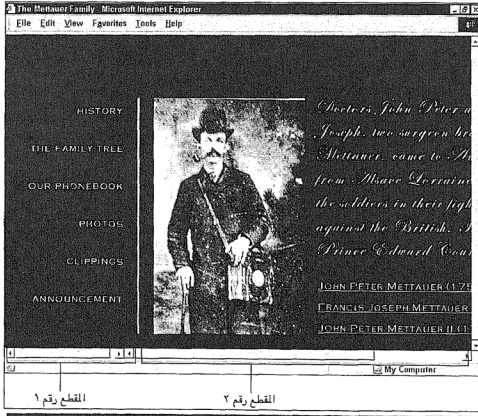 The Mettauer Family - Microsoft Internet Explorer
File Edit View Favorites Tools Help
HISTORY
THE FAMILY TREE
OUR PHONEBOOK
PHOTOS
CLIPPINGS
ANNOUNCEMENT
Doctors John Peter a
Joseph, two surgeon br
Mettauer came to
from Alsace Lorraine
the soldiers in their figh
against the British.
Prince Edward Coun
JOHN PETER METTAUER (175
FRANCIS JOSEPH METTAUER
JOHN PETER METTAUER II (1
My Computer
المقطع رقم ١
المقطع رقم ٢